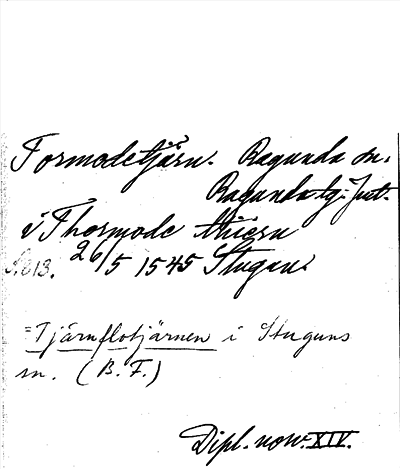 Tormodetjärn. Ragunda sn.
Ragunda tg. Jmt.
i Thormode thiern
S. 613. 26/5 1545 Stugun.
=Tjärnflotjärnen i Stuguns
sn. (B. F.)
Dipl. norv. XIV.